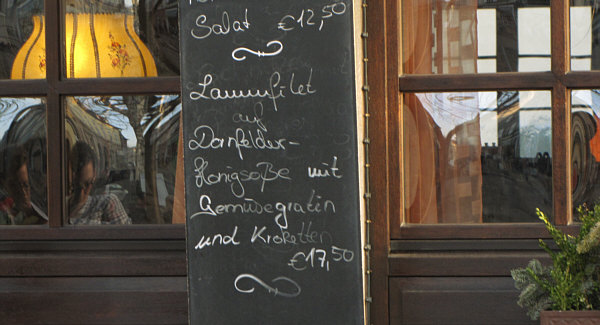 Salat €12,50
Lammfilet
auf
Dornfelder-
Honigsoße mit
Gemüsegratin
und Kroketten
€17,50